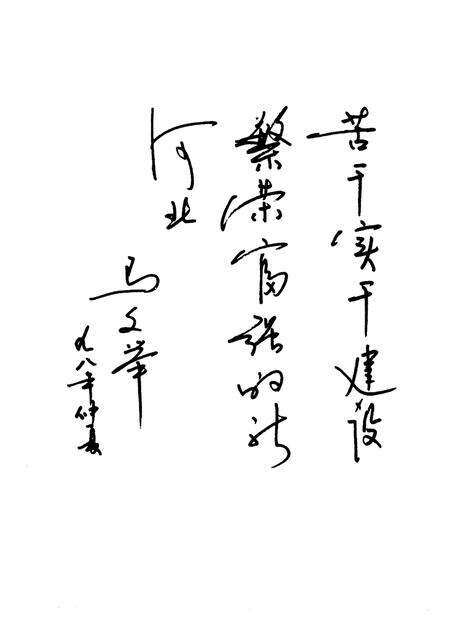 苦干实干建设
繁荣富强的新
河北
马文举
九八年仲夏